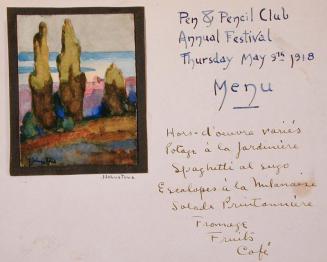 Pen & Pencil Club
Annual Festival
Thursday May 9th 1918
Menu
Hors-d'oeuvre variés
Potage à la Jardinière
Spaghetti al sugo
Escalopes à la Milanaise
Salade Printannière
Fromage
Fruits
Café
Johnstone